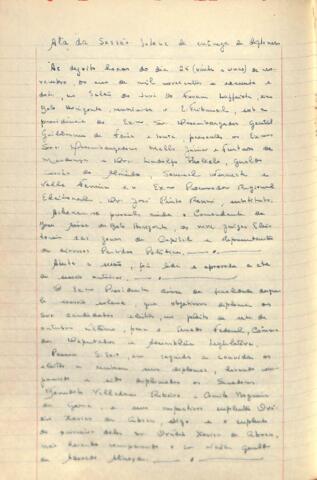 Ata da Sessão Solene de entrega de diplomas
Às dezoito horas do dia 26 (vinte e seis) de no-
vembro do ano de mil novecentos e sessenta e
dois, no Salão do Juri do Forum Lafayette em
Belo Horizonte, reuniu-se o Tribunal, sob a
presidência do Exmo Snr Desembargador Gentil
Guilherme de Faria e Souza, presentes os Exmos
Snrs Desembargadores Mello Junior e Furtado de
Mendonça e Drs.
de Almeida,
Valle Ferreira e o Exmo Procurador Regional
Eleitoral, Dr. José Pinto Renno, substituto.
Achavam-se presentes ainda o Comandante da
de Belo Horizonte, os Juizes Eleito-
rais das zonas da Capital e representantes
de diversos Partidos Politicos.
Aberta a sessão, foi lida e aprovada a ata
da sessão anterior.
O Exmo Presidente da finalidade daque-
la sessão solene, que objetivava diplomar os
Snrs candidatos eleitos, no pleito de sete de
outubro ultimo, para o Senado Federal, Câmara
dos Deputados e Assembléia Legislativa.
Passou S. Excia, em seguida a convidar os
eleitos a receberem seus diplomas, tendo com-
parecido e sido diplomados os Senadores
Benedito Valladares Ribeiro e Camilo Nogueira
da Gama, e seus respectivos suplentes
Xavier de Abreu, digo, e o suplente
do primeiro deles, snr Xavier de Abreu,
não tendo comparecido o snr